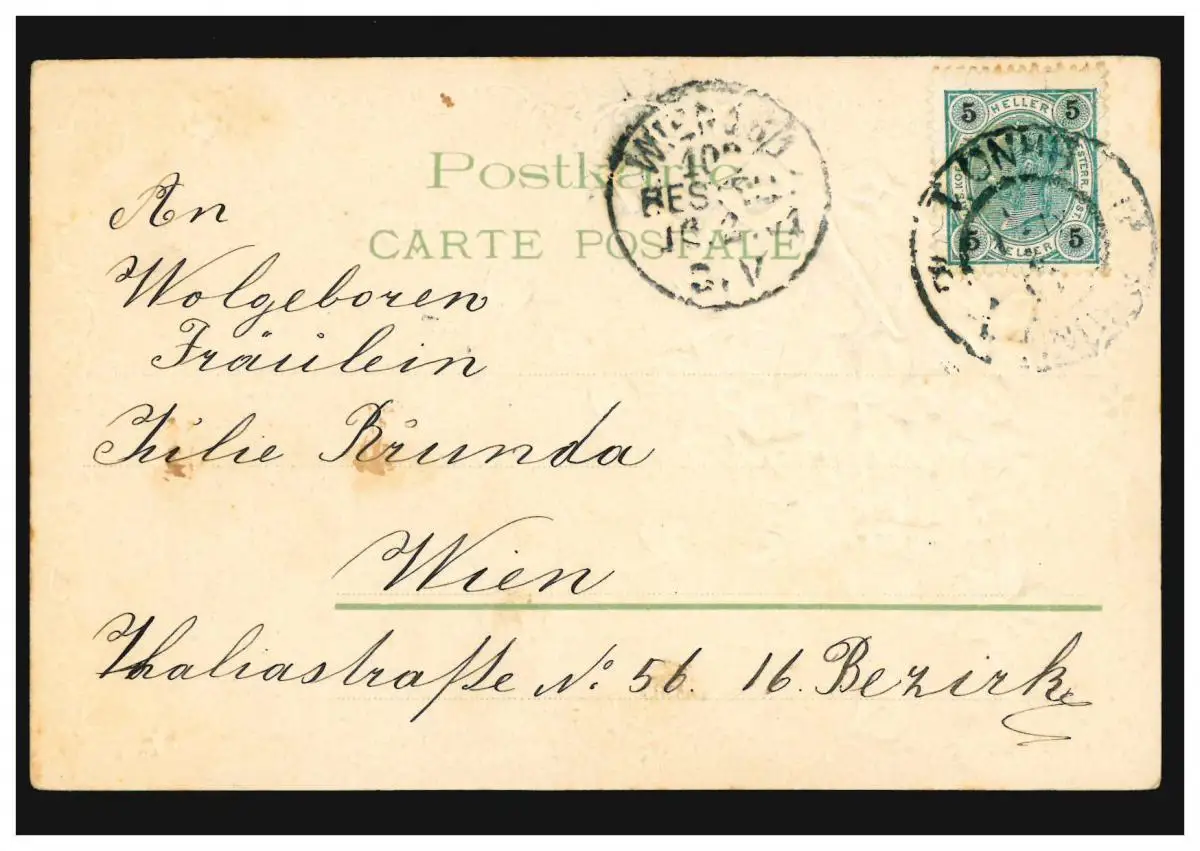 Postkarte
CARTE POSTALE
5 HELLER 5
5 HELLER 5
BESTELLT
An
Wolgeboren
Fräulein
Julie Brunda
Wien
Thaliastraße No. 56. 16. Bezirk